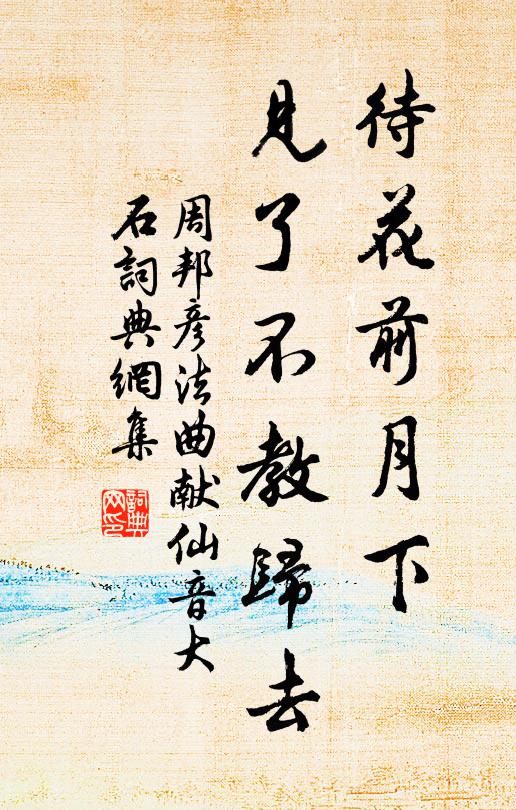 待花前月下
見了不教歸去
周邦彦法曲献仙音大
石詞典網集
詞典
网印